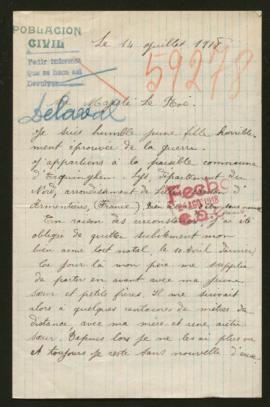 POBLACION
CIVIL
Pedir informes
que se haga así
Le 14 Juillet 1918
59278
Delaval
Majesté Le Roi.
Je suis humble jeune fille horrible-
ment éprouvée de la guerre.
J'appartiens à la paisible commune
d'Erquinghem-Lys, département du
Nord, arrondissement de Lille, canton d'
Armentières (France).
Fecho
AGO 1918
En raison des circonstances j'ai été
obligée de quitter subitement mon
bien aimé toit natal le 10 Avril dernier
Ce jour là mon père me supplia
de partir en avant avec ma jeune
sœur et petits frères. Il me suivait
alors à quelques centaines de mètres de
distance, avec ma mère et mon autre
sœur. Depuis lors je ne les ai plus vu
et toujours je reste sans nouvelle d'eux.